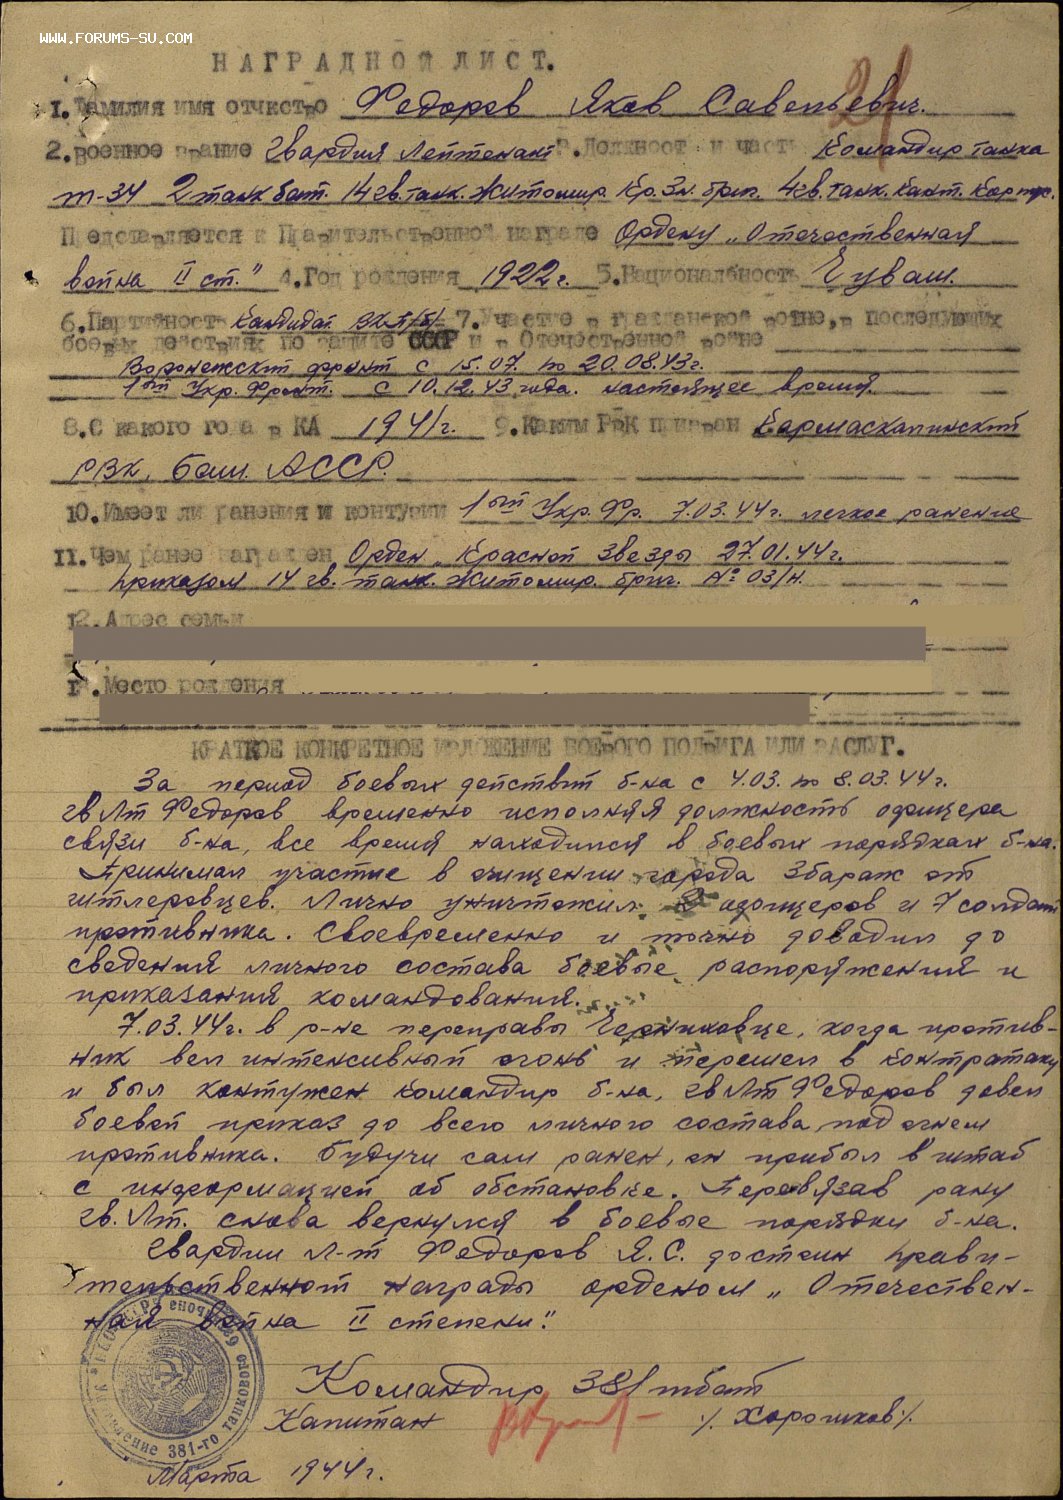 WWW.FORUMS-SU.COM
НАГРАДНОЙ ЛИСТ.
1. Фамилия имя отчество Федоров Яков Савельевич.
21
2. военное звание Гвардия Лейтенант 3. Должност и часть Командир танка
Т-34 2 танк бат. 14 гв. танк. Житомир. Кр. Зн. бриг. 4 гв. танк. Кант. Корпус.
Представляется к Правительственной награде Ордену „Отечественная
война II ст." 4. Год рождения 1922 г. 5. Националбность Чуваш.
6. Партийность Кандидат ВКП/б/ 7. Участие в гражданской войне, в последующих
боевых действиях по защите СССР и в Отечественной войне
Воронежский фронт с 15.07. по 20.08.43г.
1ый Укр. Фронт. с 10.12.43 года. настоящее время.
8. С какого года в КА 1941 г. 9. Каким РВК призван Кармаскалинский
РВК, Баш. АССР.
10. Имеет ли ранения и контузии 1ый Укр. Фр. 7.03.44г. легкое ранение
11. Чем ранее награжден Орден „Красной Звезды 27.01.44г.
приказом 14 гв. танк. Житомир. бриг. № 03/н.
12. Адрес семьи
1 . Место рождения
КРАТКОЕ КОНКРЕТНОЕ ИЗЛОЖЕНИЕ БОЕВОГО ПОДВИГА ИЛИ ЗАСЛУГ.
За период боевых действий б-на с 4.03. по 8.03.44г.
гв Лт Федоров временно исполняя должность офицера
связи б-на, все время находился в боевых порядках б-на.
Принимал участие в очищении города Збараж от
гитлеровцев. Лично уничтожил офицеров и 7 солдат
противника. Своевременно и точно доводил до
сведения личного состава боевые распоряжения и
приказания командования.
7.03.44г. в р-не переправы Черниховце, когда против-
ник вел интенсивный огонь и перешел в контратаку
и был контужен командир б-на, гв Лт Федоров довел
боевой приказ до всего личного состава под огнем
противника. Будучи сам ранен, он прибыл в штаб
с информацией об обстановке. Перевязав рану
гв. Лт. снова вернулся в боевые порядки б-на.
Гвардии л-т Федоров Я.С. достоин прави-
тельственной награды орденом „Отечествен-
ная война II степени".
Командир 381 тбат
Капитан /. Хорошков /.
381-го танкового
Марта 1944 г.